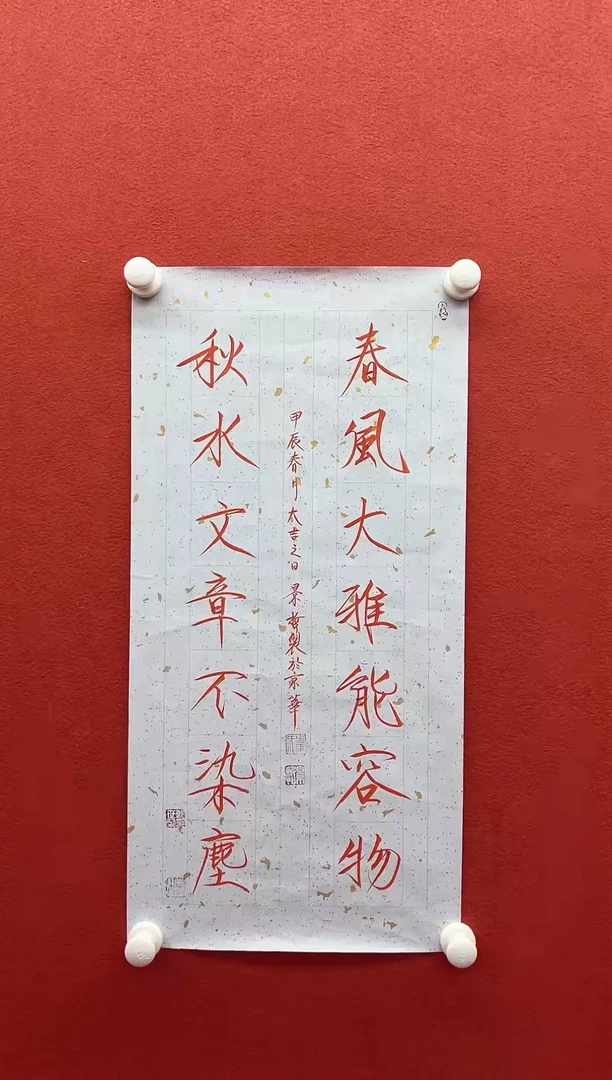 春風大雅能容物
秋水文章不染塵
甲辰春月大吉之日景樹製於京華